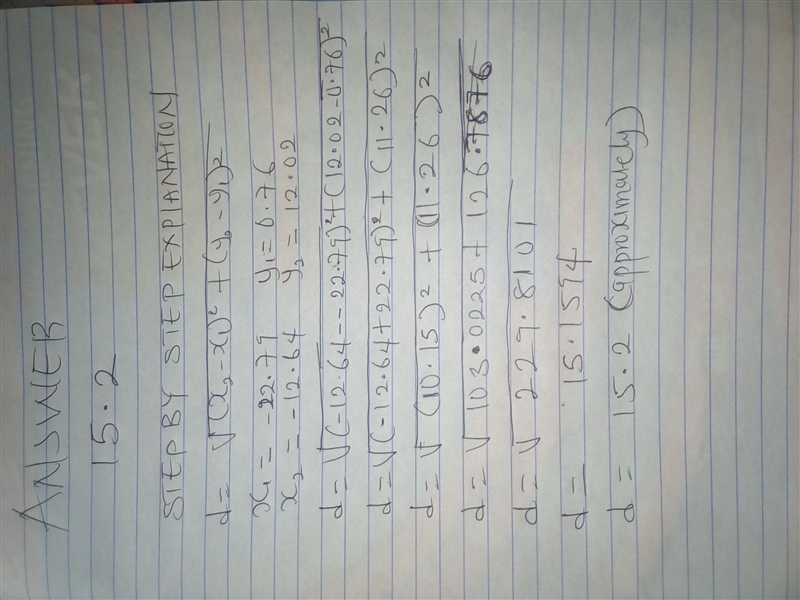 ANSWER
15.2
STEP BY STEP EXPLANATION
d = √(x₂-x₁)² + (y₂-y₁)²
x₁ = -22.79 y₁ = 0.76
x₂ = -12.64 y₂ = 12.02
d = √(-12.64--22.79)²+(12.02-0.76)²
d = √(-12.64+22.79)² + (11.26)²
d = √(10.15)² + (11.26)²
d = √103.0225 + 126.7876
d = √229.8101
d = 15.1594
d = 15.2 (approximately)